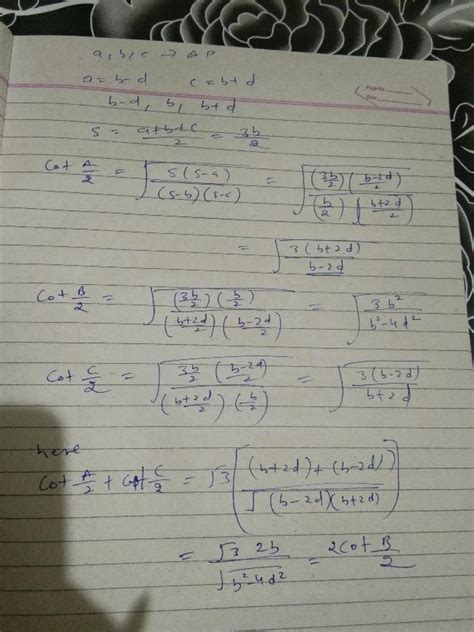 a, b, c → AP
a = b-d c = b+d
b-d, b, b+d
S = (a+b+c)/2 = 3b/2
Cot A/2 = √(S(S-a)/((S-b)(S-c))) = √((3b/2)((b+2d)/2)/((b/2)((b-2d)/2)))
= √(3(b+2d)/(b-2d))
Cot B/2 = √((3b/2)(b/2)/(((b+2d)/2)((b-2d)/2))) = √(3b²/(b²-4d²))
Cot C/2 = √((3b/2)((b-2d)/2)/(((b+2d)/2)(b/2))) = √(3(b-2d)/(b+2d))
here
Cot A/2 + Cot C/2 = √3(((b+2d)+(b-2d))/√((b-2d)(b+2d)))
= √3 2b/√(b²-4d²) = 2Cot B/2